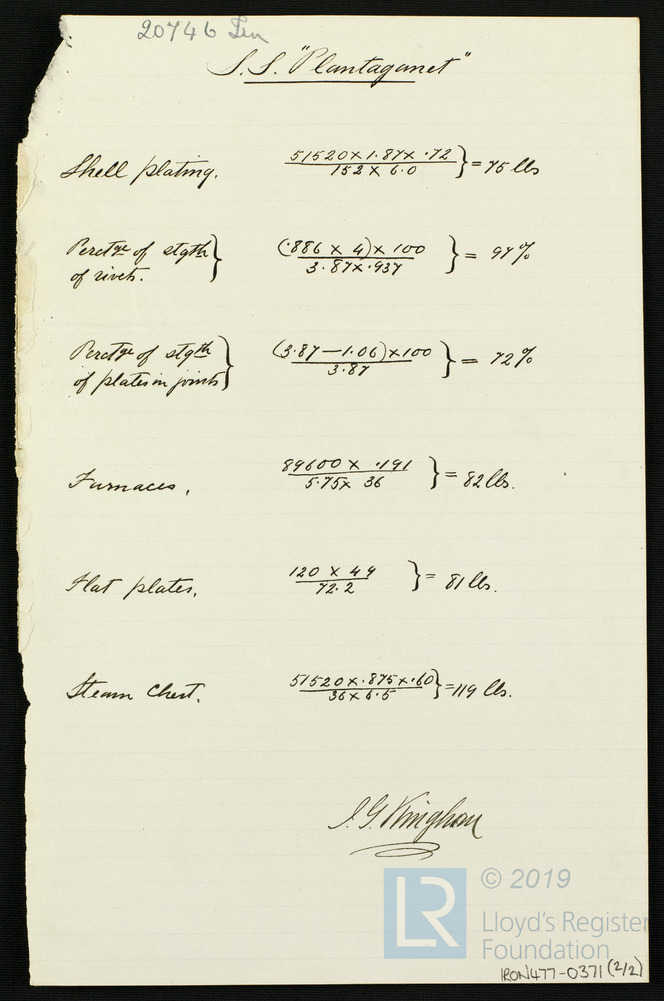 20746 Lon
S.S. "Plantaganet"
Shell plating. 51520 x 1.87 x .72 / 152 x 6.0 } = 75 lbs
Perctge of stgth of rivets. } (.886 x 4) x 100 / 3.87 x .937 } = 97 %
Perctge of stgth of plates in joints } (3.87 — 1.06) x 100 / 3.87 } = 72 %
Furnaces, 89600 x .191 / 5.75 x 36 } = 82 lbs.
Flat plates, 120 x 49 / 72.2 } = 81 lbs.
Steam Chest. 51520 x .875 x .60 / 36 x 6.5 } = 119 lbs.
LR
© 2019
Lloyd's Register
Foundation
IRON477-0371 (2/2)